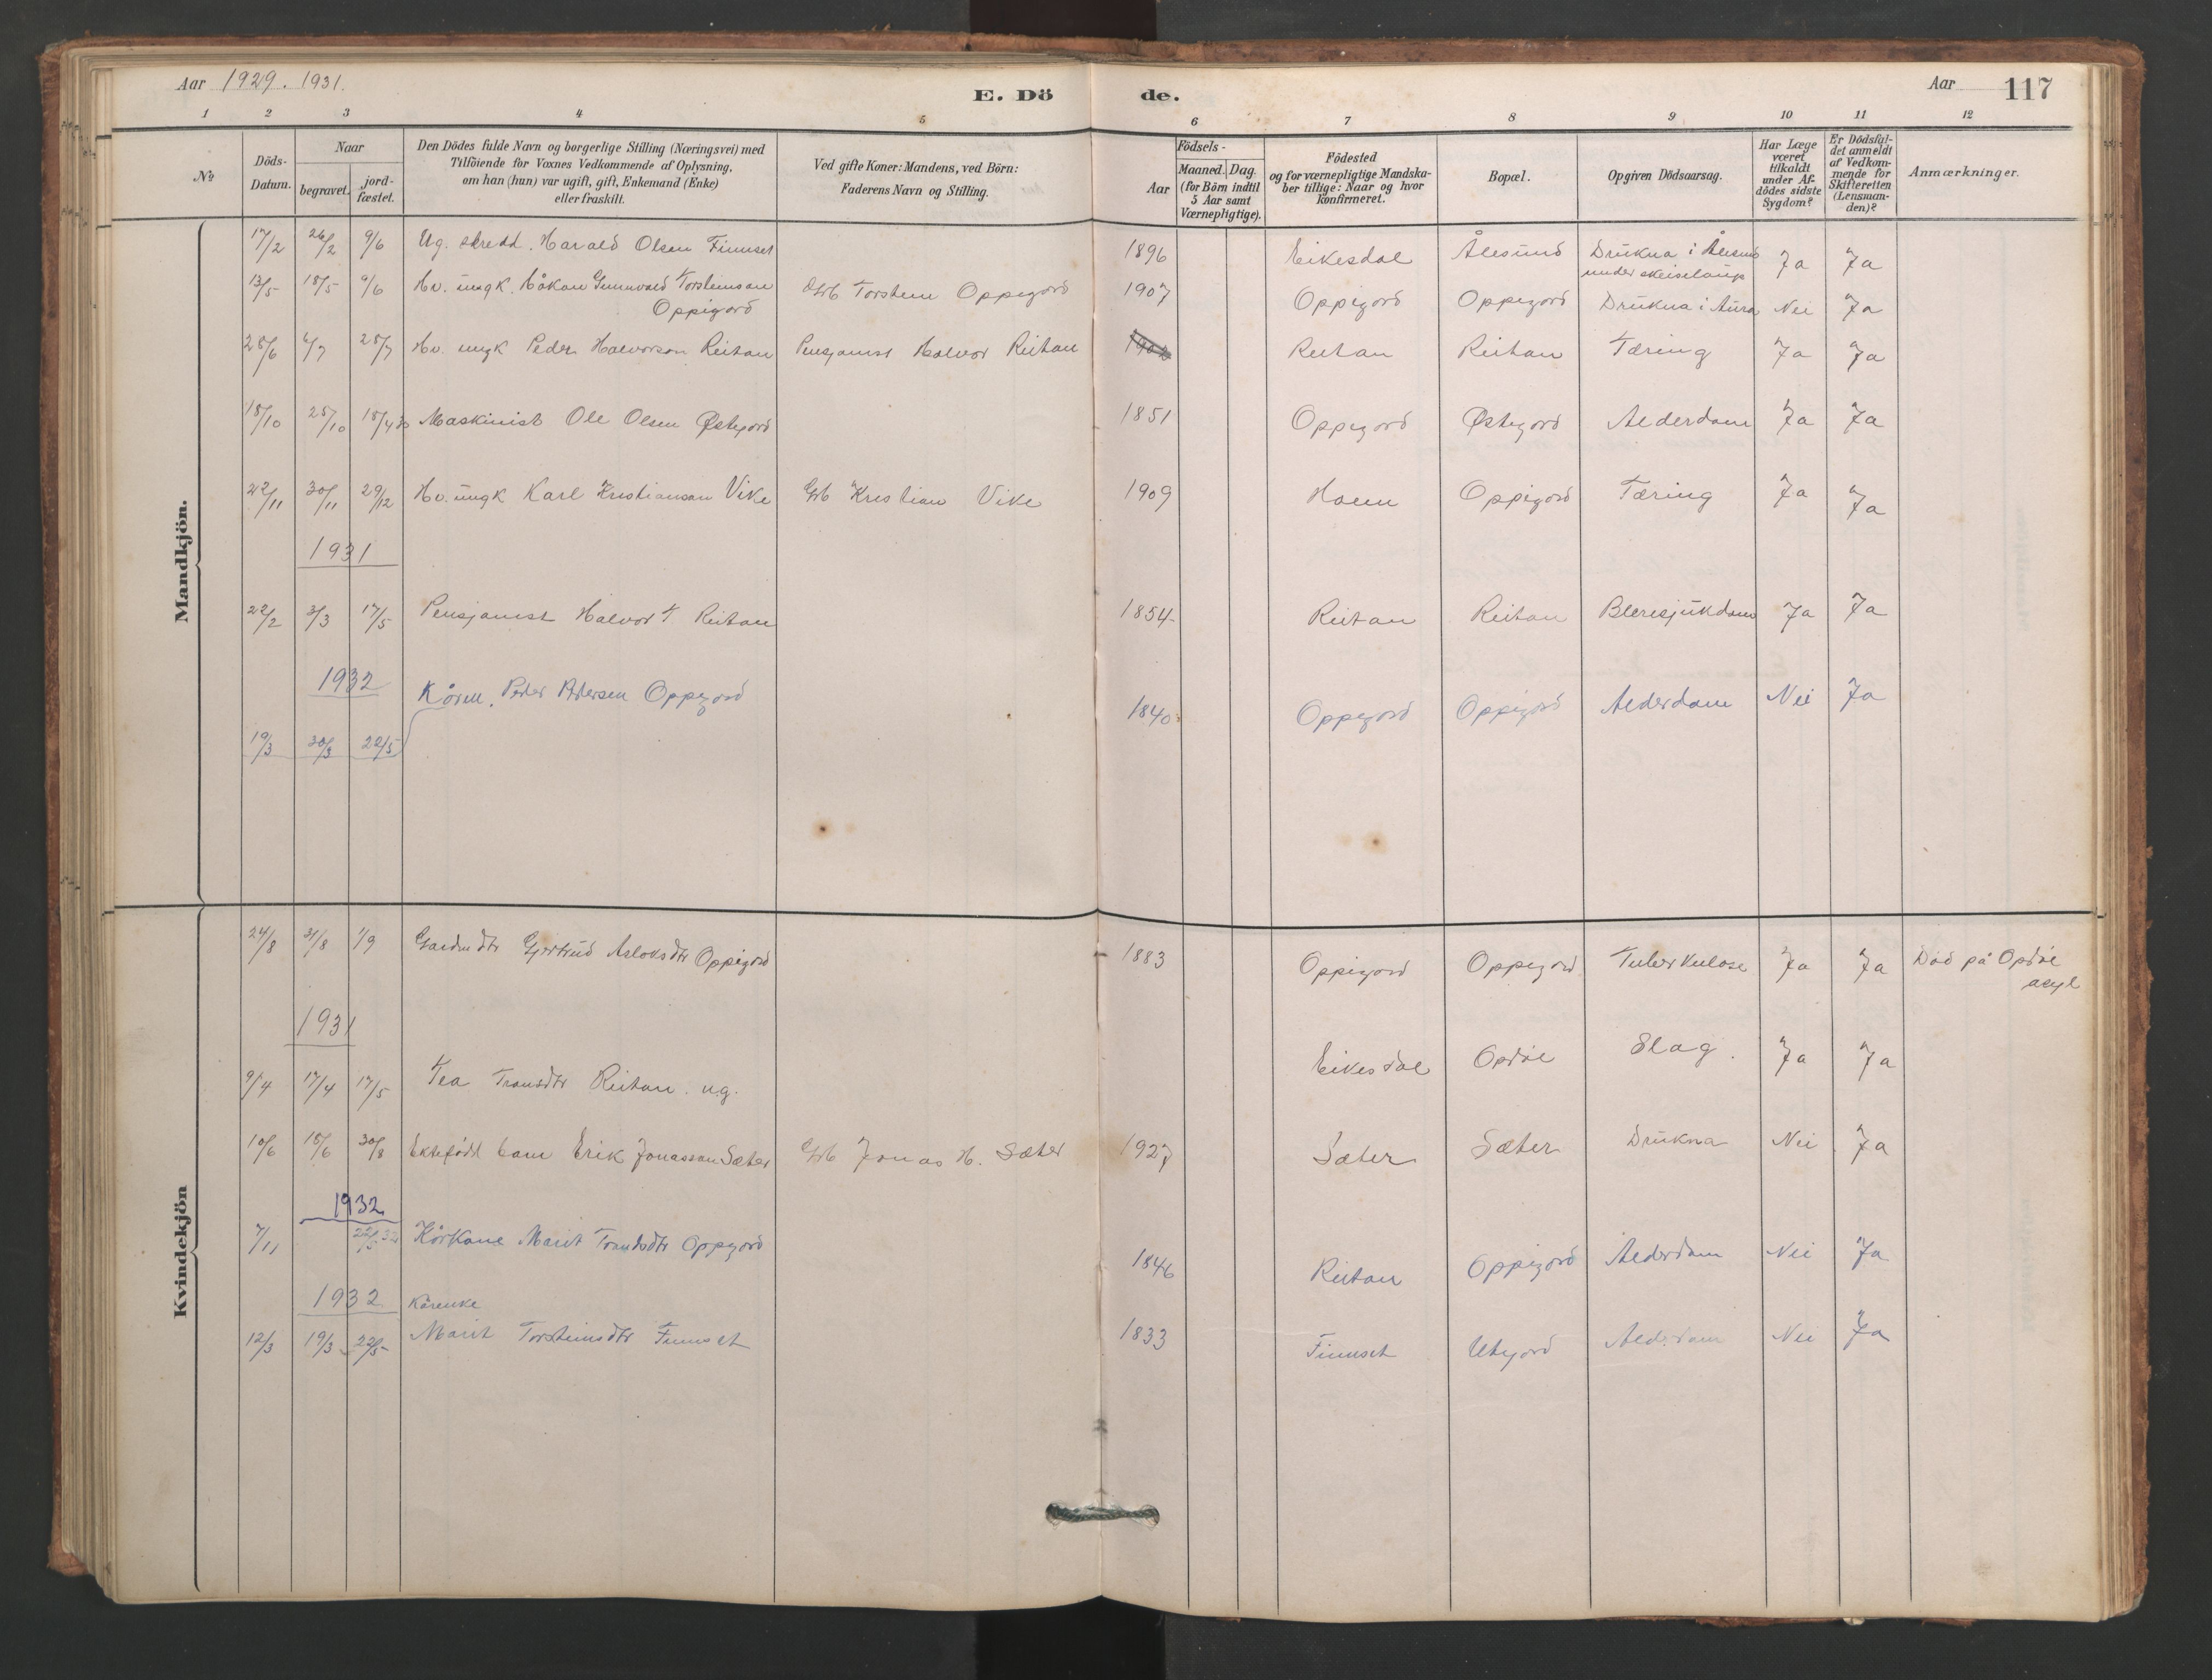 Aar 1929. 1931.
E. Dö de.
Aar 117
1 2 3 4 5 6 7 8 9 10 11 12
№
Döds-Datum.
Naar
begravet.
jord-fæstet.
Den Dödes fulde Navn og borgerlige Stilling (Næringsvei) med
Tilföiende for Voxnes Vedkommende af Oplysning,
om han (hun) var ugift, gift, Enkemand (Enke)
eller fraskilt.
Ved gifte Koner: Mandens, ved Börn:
Faderens Navn og Stilling.
Födsels-
Aar
Maaned. Dag.
(for Börn indtil
5 Aar samt
Værnepligtige).
Födested
og for værnepligtige Mandska-
ber tillige: Naar og hvor
konfirmeret.
Bopæl.
Opgiven Dödsaarsag.
Har Læge
været
tilkaldt
under Af-
dödes sidste
Sygdom?
Er Dödsfal-
det anmeldt
af Vedkom-
mende for
Skifteretten
(Lensman-
den)?
Anmærkninger.
Mandkjön.
17/2 26/2 9/6 Ug. skredd. Harald Olsen Finnset 1896 Eikesdal Ålesund Drukna i Ålesund Ja Ja
under skeiselaup
13/5 18/5 9/6 Hv. ungk. Håkon Gunnvald Torsteinson Grb Torstein Oppigord 1907 Oppigord Oppigord Drukna i Aura Nei Ja
Oppigord
28/6 6/7 28/7 Hv. ungk Peder Halvorson Reitan Pensjonist Halvor Reitan Reitan Reitan Tæring Ja Ja
18/10 25/10 18/4 30 Maskinist Ole Olsen Østigord 1851 Oppigord Østigord Alderdom Ja Ja
22/11 30/11 29/12 Hv. ungk Karl Kristianson Vike Grb Kristian Vike 1909 Hoem Oppigord Tæring Ja Ja
1931
22/2 3/3 17/5 Pensjonist Halvor T. Reitan 1854 Reitan Reitan Bleresjukdom Ja Ja
1932
Kårm. Peder Pedersen Oppigord 1840 Oppigord Oppigord Alderdom Nei Ja
19/3 30/3 22/5
Kvindekjön
24/8 31/8 1/9 Gardmdtr Gjertrud Aslaksdtr Oppigord 1883 Oppigord Oppigord Tuberkulose Ja Ja Død på Opdøl
asyl
1931
9/4 17/4 17/5 Tea Tronsdtr Reitan. ug. Eikesdal Opdøl Slag. Ja Ja
10/6 18/6 30/8 Ektefødd barn Erik Jonassøn Sæter Grb Jonas H. Sæter 1927 Sæter Sæter Drukna Nei Ja
1932
7/11 22/5 32 Kårkone Marit Trondsdtr Oppigord 1846 Reitan Oppigord Alderdom Nei Ja
1932 Kårenke
12/3 19/3 22/5 Marit Torsteinsdtr Finnset 1833 Finnset Utigord Alderdom Nei Ja